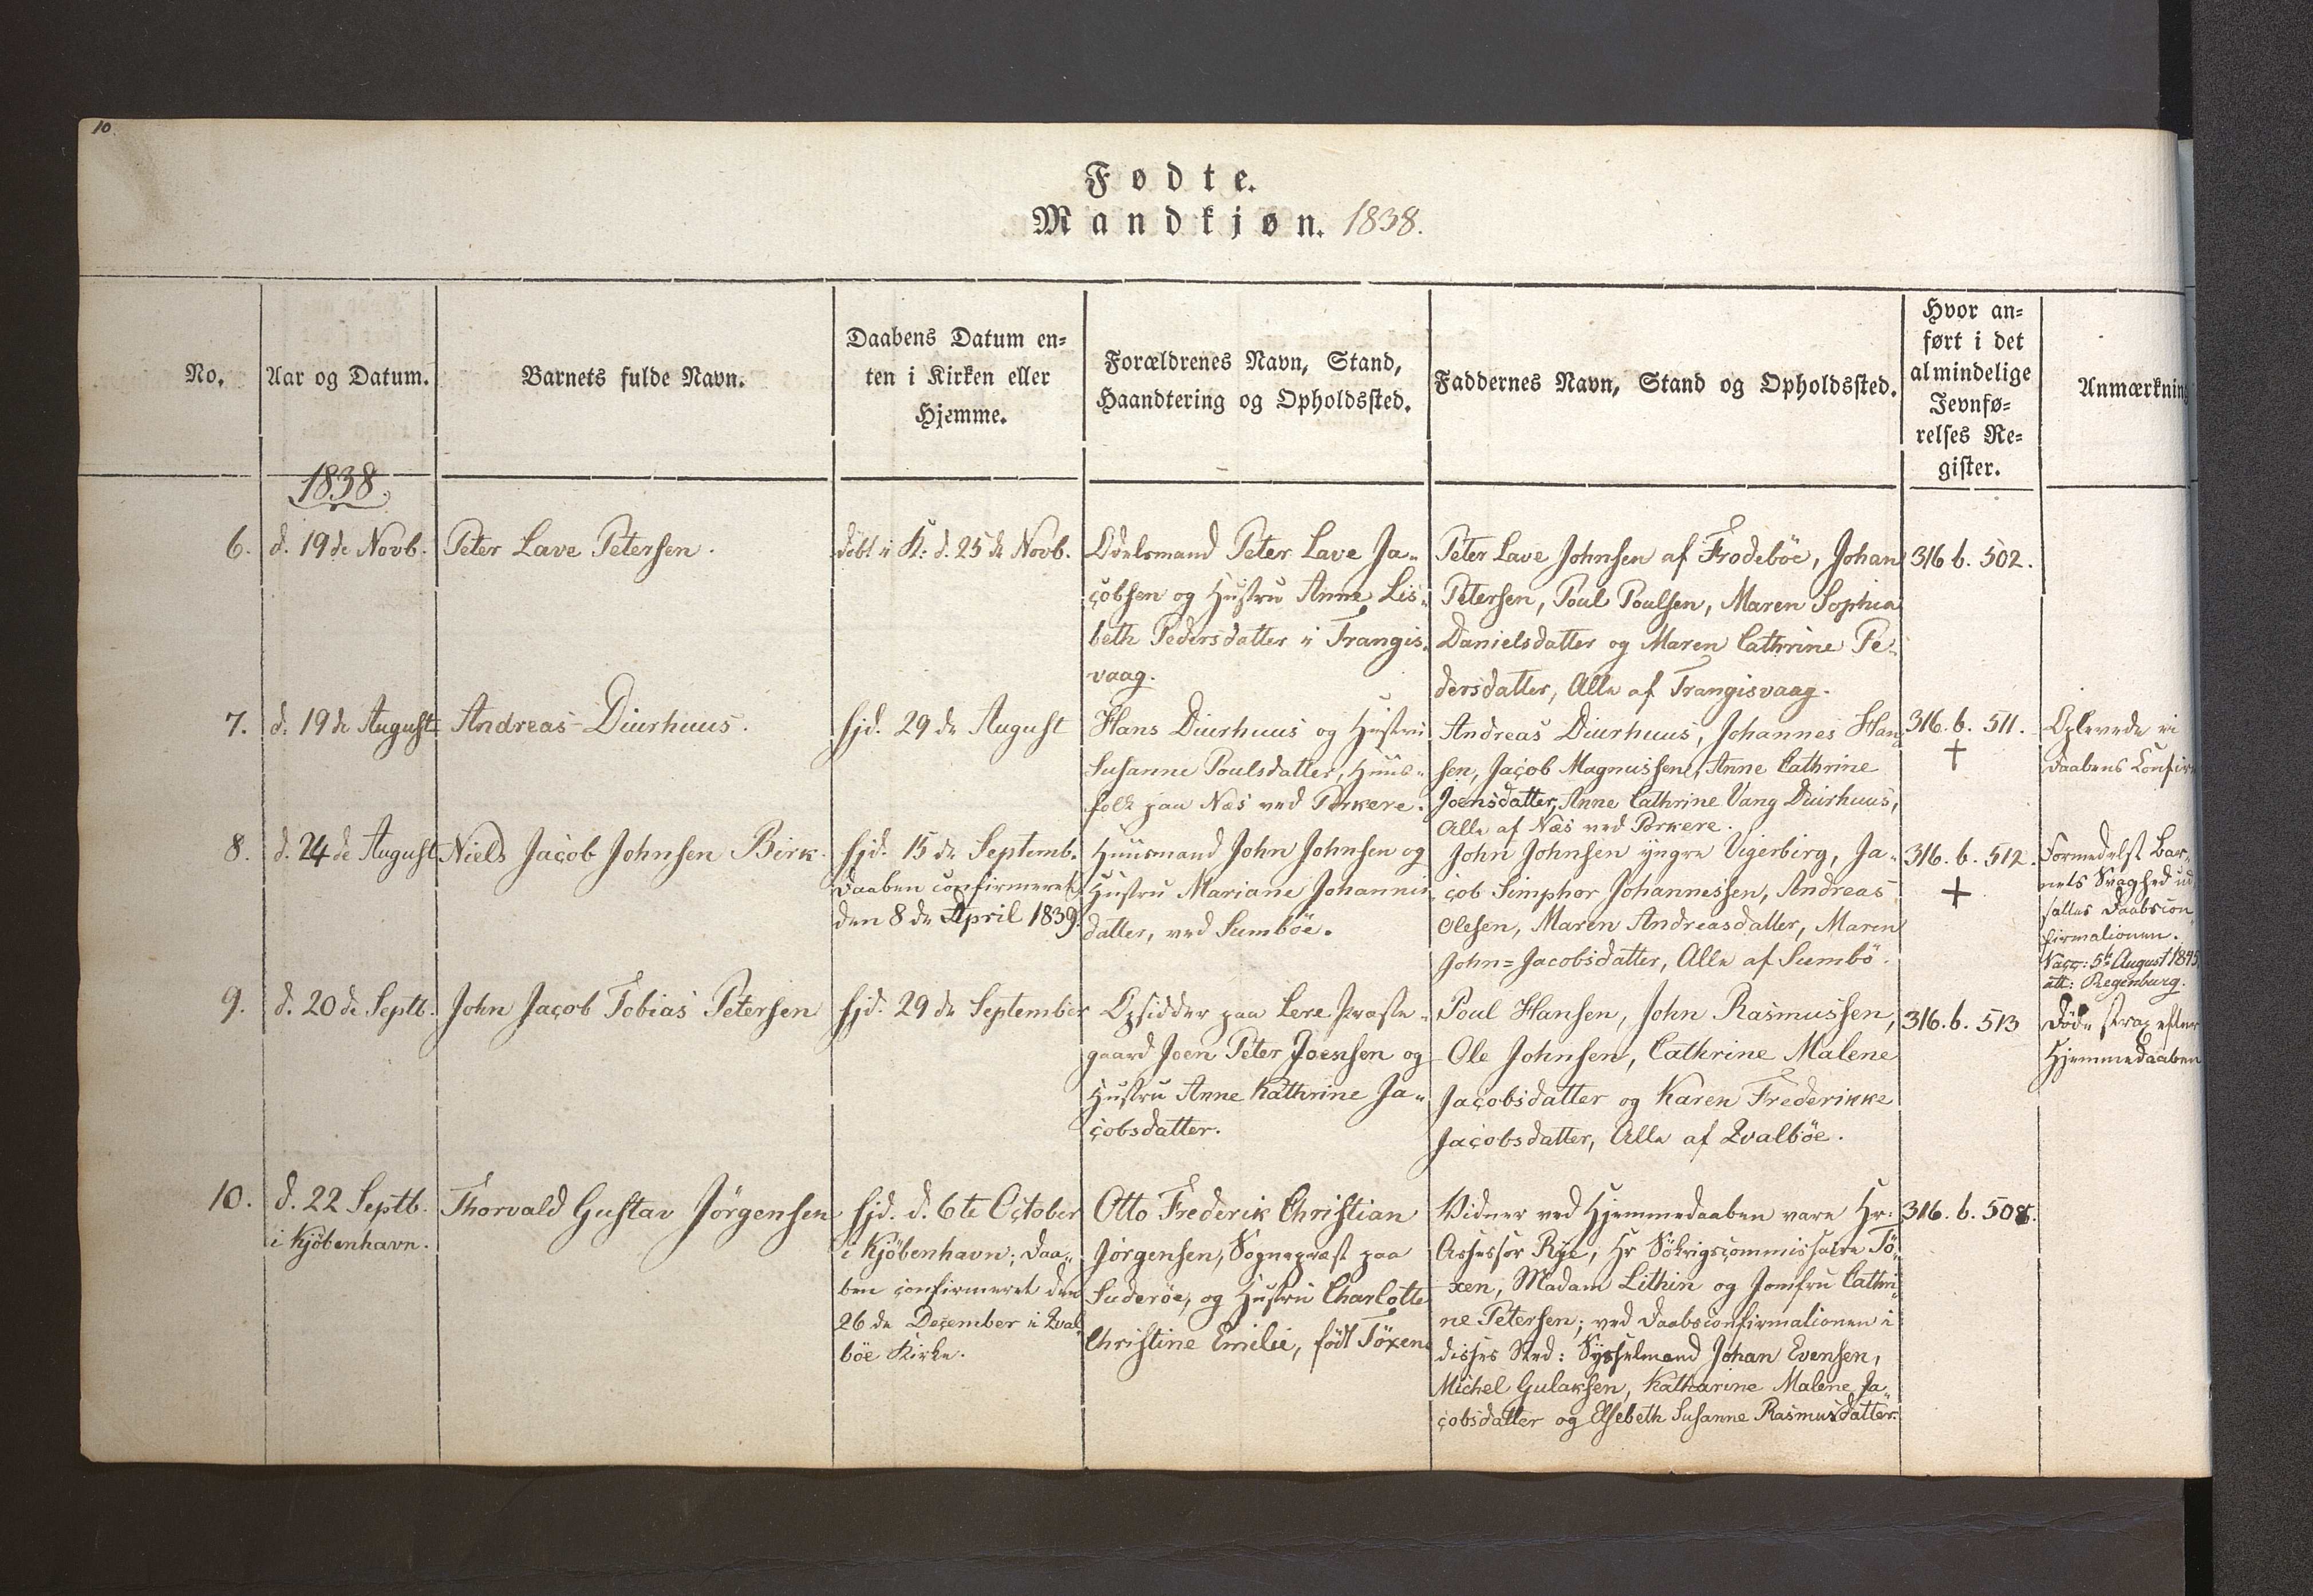 10.
Fødte.
Mandkjøn. 1838.
No.
Aar og Datum.
Barnets fulde Navn.
Daabens Datum en-
ten i Kirken eller
Hjemme.
Forældrenes Navn, Stand,
Haandtering og Opholdssted.
Faddernes Navn, Stand og Opholdssted.
Hvor an-
ført i det
almindelige
Jevnfø-
relses Re-
gister.
Anmærkning
1838.
6.
d. 19de Novb.
Peter Lave Petersen.
döbt i K. d. 25de Novb.
Odelsmand Peter Lave Ja-
cobsen og Hustru Anne Lis-
beth Pedersdatter i Trangis-
vaag.
Peter Lave Johnsen af Frodeböe, Johan
Petersen, Poul Poulsen, Maren Sophia
Danielsdatter og Maren Cathrine Pe-
dersdatter, Alle af Trangisvaag.
316 b. 502.
7.
d. 19de August
Andreas Diurhuus.
hjd. 29de August
Hans Diurhuus og Hustru
Susanne Poulsdatter, Huus-
folk paa Næs ved Porkere.
Andreas Diurhuus, Johannes Han-
sen, Jacob Magnussen, Anne Cathrine
Joensdatter, Anne Cathrine Vang Diurhuus,
Alle af Næs ved Porkere.
316. b. 511.
+
Oplevede ei
Daabens Confir
8.
d. 24de August
Niels Jacob Johnsen Birk.
hjd. 15de Septemb.
Daaben confirmeret
den 8de April 1839.
Huusmand John Johnsen og
Hustru Mariane Johannis
datter, ved Sumböe.
John Johnsen yngre Vigerbirg, Ja-
cob Simphor Johannessen, Andreas
Olesen, Maren Andreasdatter, Maren
John=Jacobsdatter, Alle af Sumbö.
316. b. 512.
+
Formedelst Bar-
nets Svaghed ud
sattes Daabscon
firmationen.
Vacc: 5te August 1845
att: Regenburg.
9.
d. 20de Septb.
John Jacob Tobias Petersen
hjd. 29de September
Opsidder paa Lere Præste-
gaard Joen Peter Joensen og
Hustru Anne Kathrine Ja-
cobsdatter.
Poul Hansen, John Rasmussen,
Ole Johnsen, Cathrine Malene
Jacobsdatter og Karen Frederikke
Jacobsdatter, Alle af Qvalböe.
316. b. 513
Döde strax efter
Hjemmedaaben
10.
d. 22 Septb.
i Kjöbenhavn.
Thorvald Gustav Jörgensen
hjd. d. 6te October
i Kjöbenhavn; Daa-
ben confirmeret den
26de December i Qval
böe Kirke.
Otto Frederik Christian
Jörgensen, Sognepræst paa
Suderöe, og Hustru Charlotte
Christine Emilie, födt Töxen
Vidner ved Hjemmedaaben vare Hr.
Assessor Rye, Hr Sökrigscommissaire Tö-
xen, Madam Lithin og Jomfru Cathri-
ne Petersen; ved Daabsconfirmationen i
disses Sted: Sysselmand Johan Evensen,
Michel Gulaksen, Katharine Malene Ja-
cobsdatter og Elsebeth Susanne Rasmusdatter.
316. b. 508.